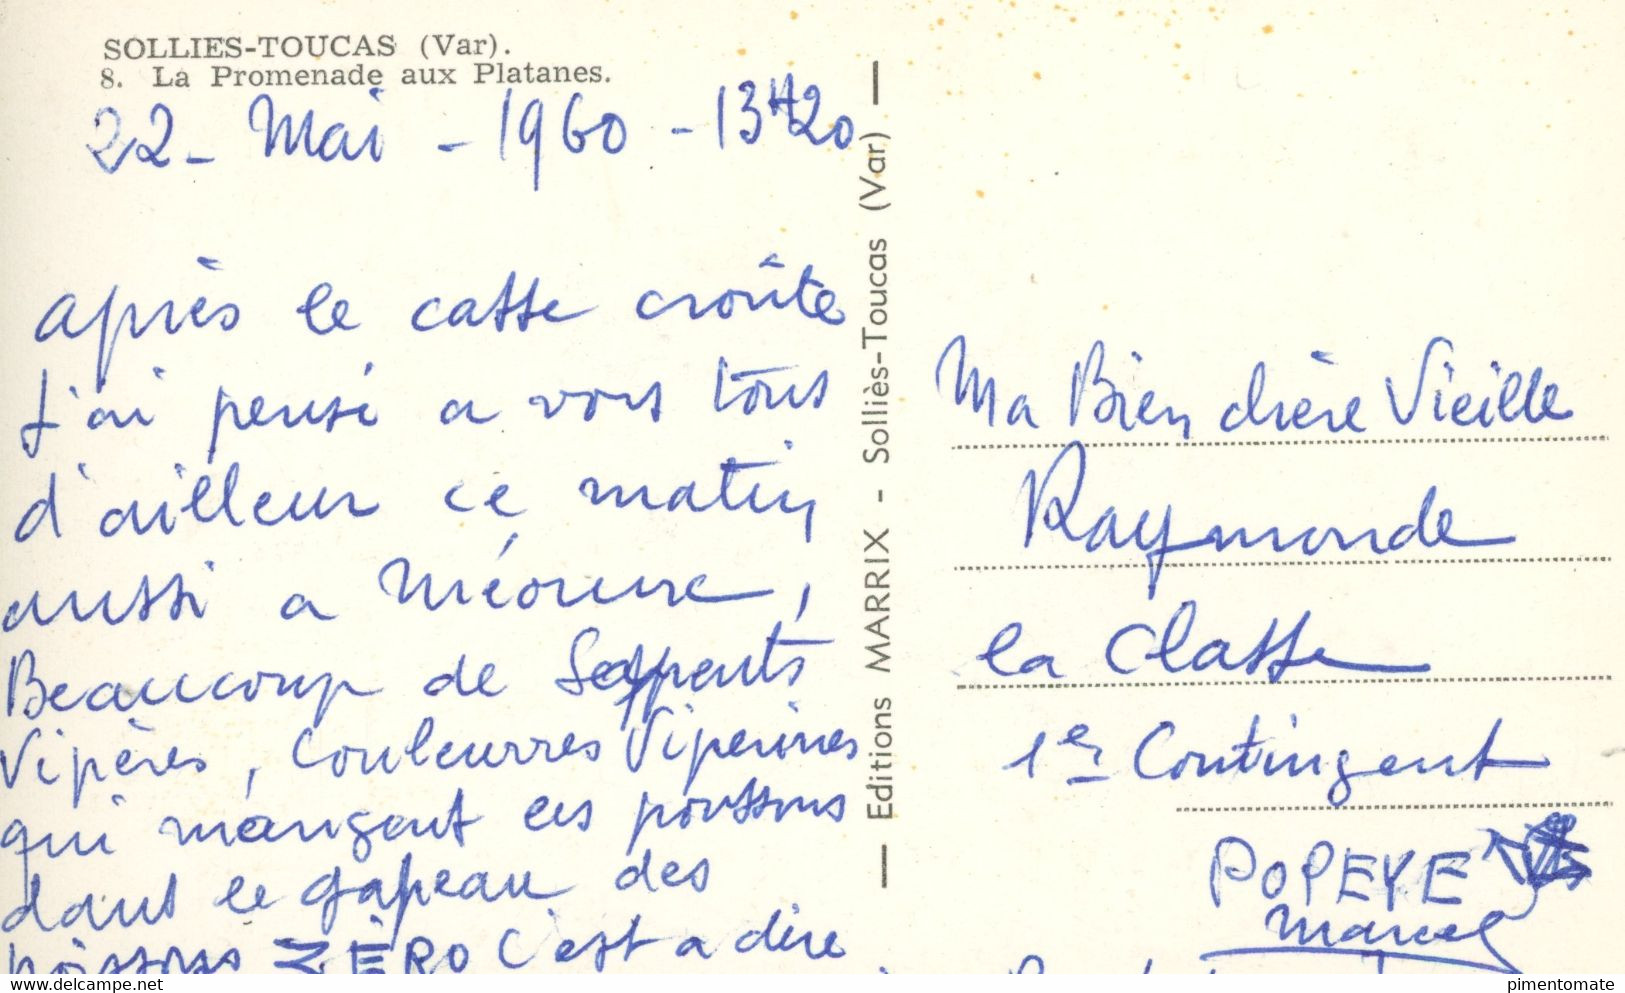 SOLLIES-TOUCAS (Var).
8. La Promenade aux Platanes.
22 - Mai - 1960 - 13H20
après le casse croûte
J'ai pensé a vous tous
d'ailleur ce matin
aussi a Méounes,
Beaucoup de Serpents
Vipères, Couleuvres Viperines
qui mangent les poissons
dans le gapeau des
poissons ZÈRO c'est a dire
— Editions MARRIX - Solliès-Toucas (Var) —
Ma Bien chère Vieille
Raymonde
la Classe
1er Contingent
POPEYE
Marcel
delcampe.net
pimentomate